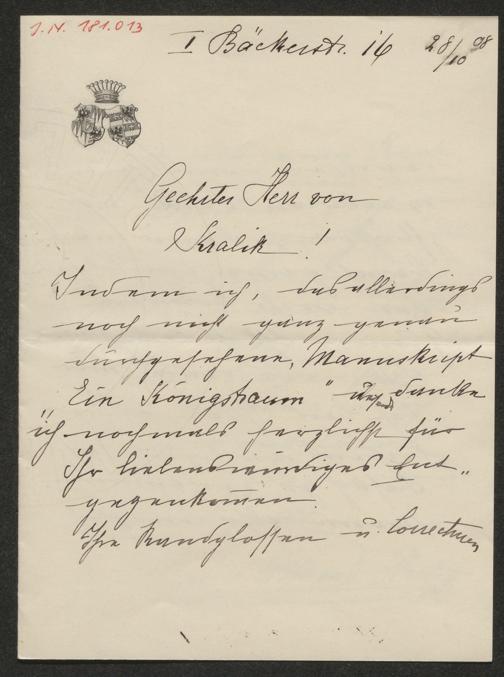 J.N. 181.013
I Bäckerstr. 16 28/10 08
Geehrter Herr von
Kralik!
Indem ich, das allerdings
noch nicht ganz genau
durchgesehene, Manuskript
„Ein Königstraum" übersende danke
ich nochmals herzlichst für
Ihr liebenswürdiges Ent„
gegenkom̅en.
Ihre Randglossen u. Correcturen